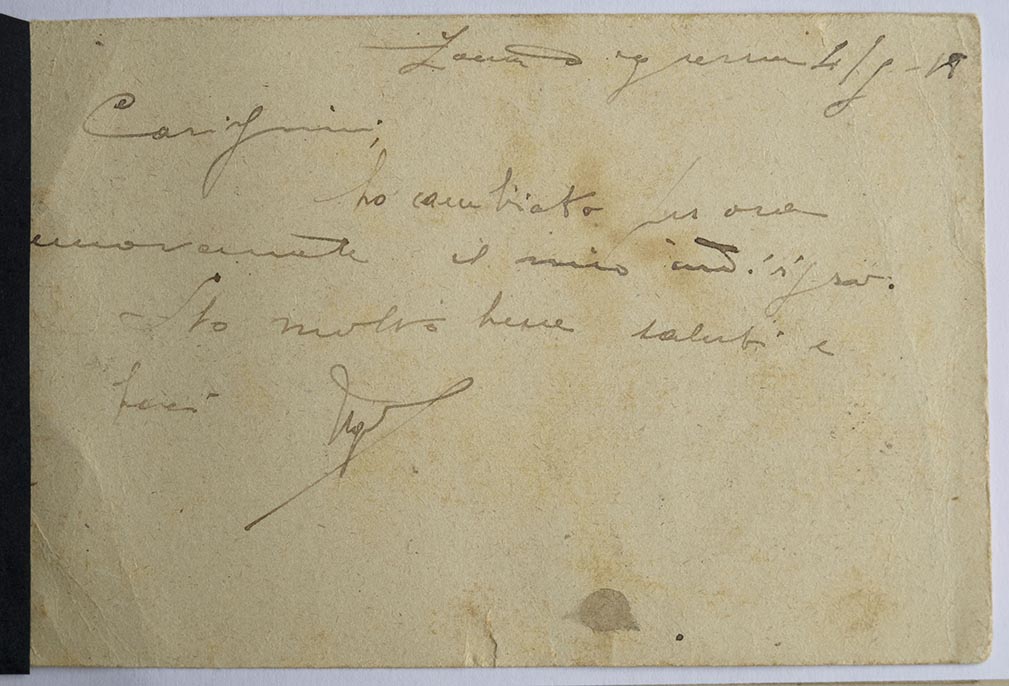 Zona di guerra 4/9-18
Carissimi,
ho cambiato per ora
nuovamente il mio indirizzo.
Sto molto bene saluti e
baci Ugo